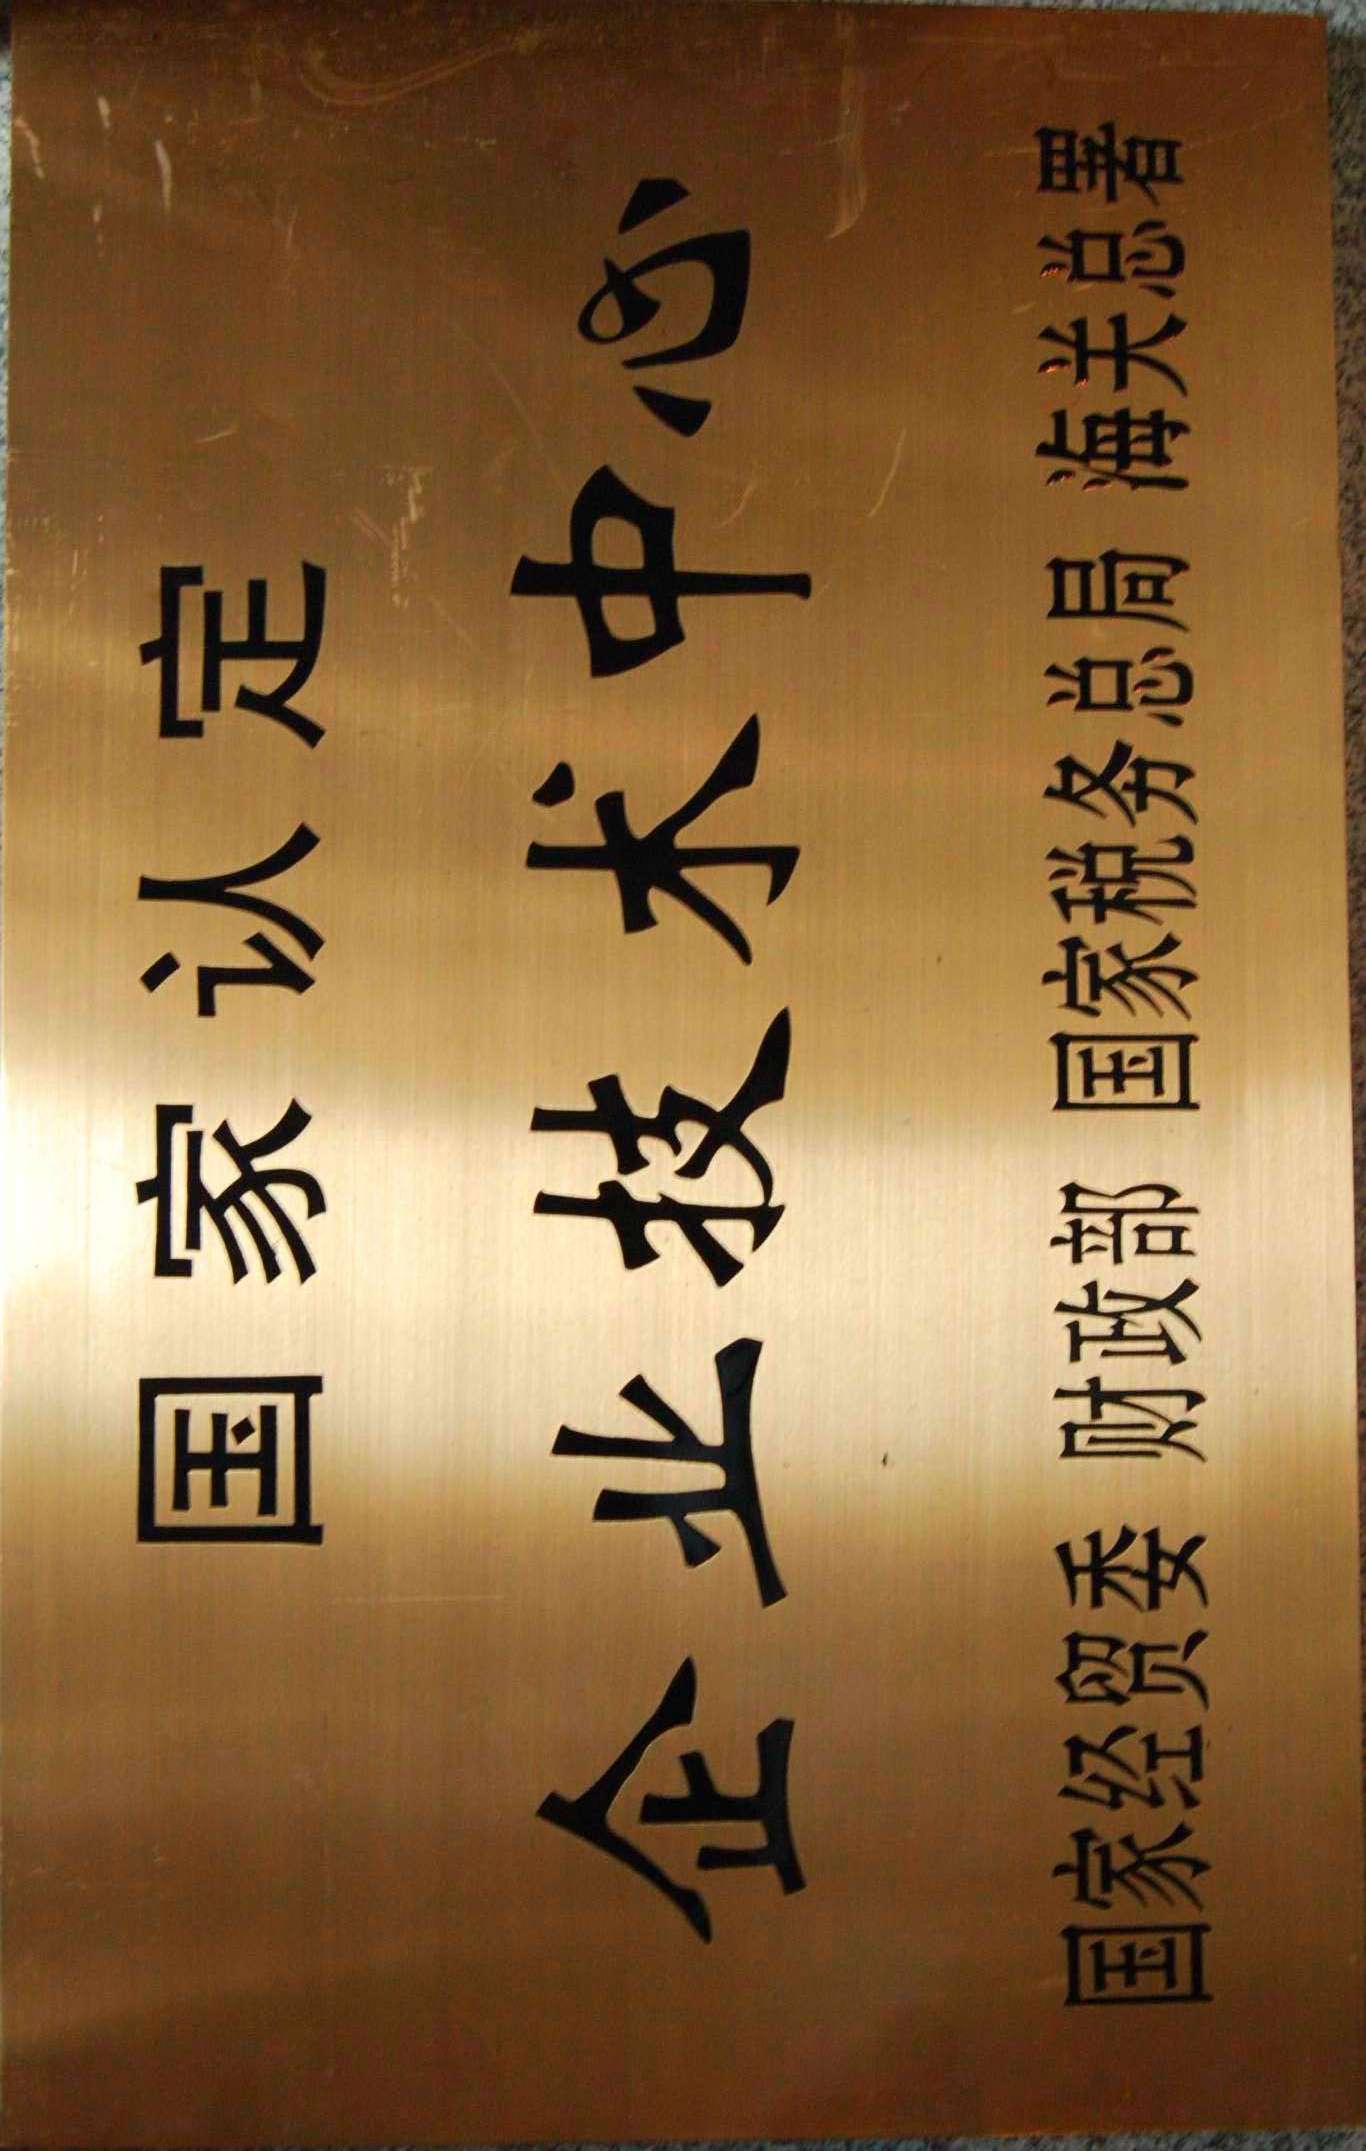 国家认定
企业技术中心
国家经贸委 财政部 国家税务总局 海关总署